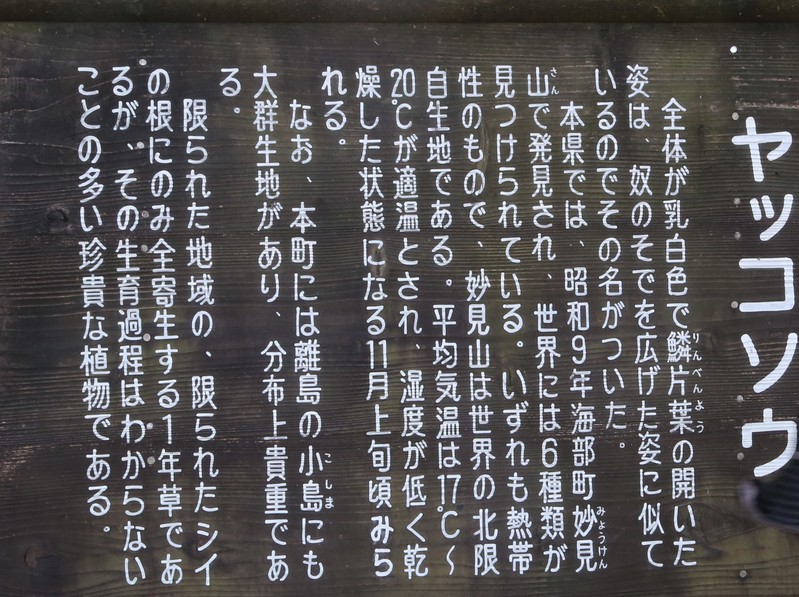 ヤッコソウ
全体が乳白色で鱗片葉の開いた
りんぺんよう
姿は、奴のそでを広げた姿に似て
いるのでその名がついた。
本県では、昭和9年海部町妙見
みょうけん
山で発見され、世界には6種類が
さん
見つけられている。いずれも熱帯
性のもので、妙見山は世界の北限
自生地である。平均気温は17℃〜
20℃が適温とされ、湿度が低く乾
燥した状態になる11月上旬頃みら
れる。
なお、本町には離島の小島にも
こしま
大群生地があり、分布上貴重であ
る。
限られた地域の、限られたシイ
の根にのみ全寄生する1年草であ
るが、その生育過程はわからない
ことの多い珍貴な植物である。